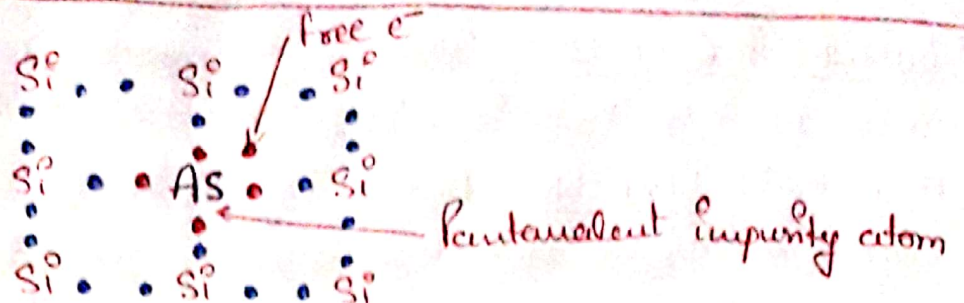 free e⁻
Si Si Si
Si As Si
Pentavalent impurity atom
Si Si Si